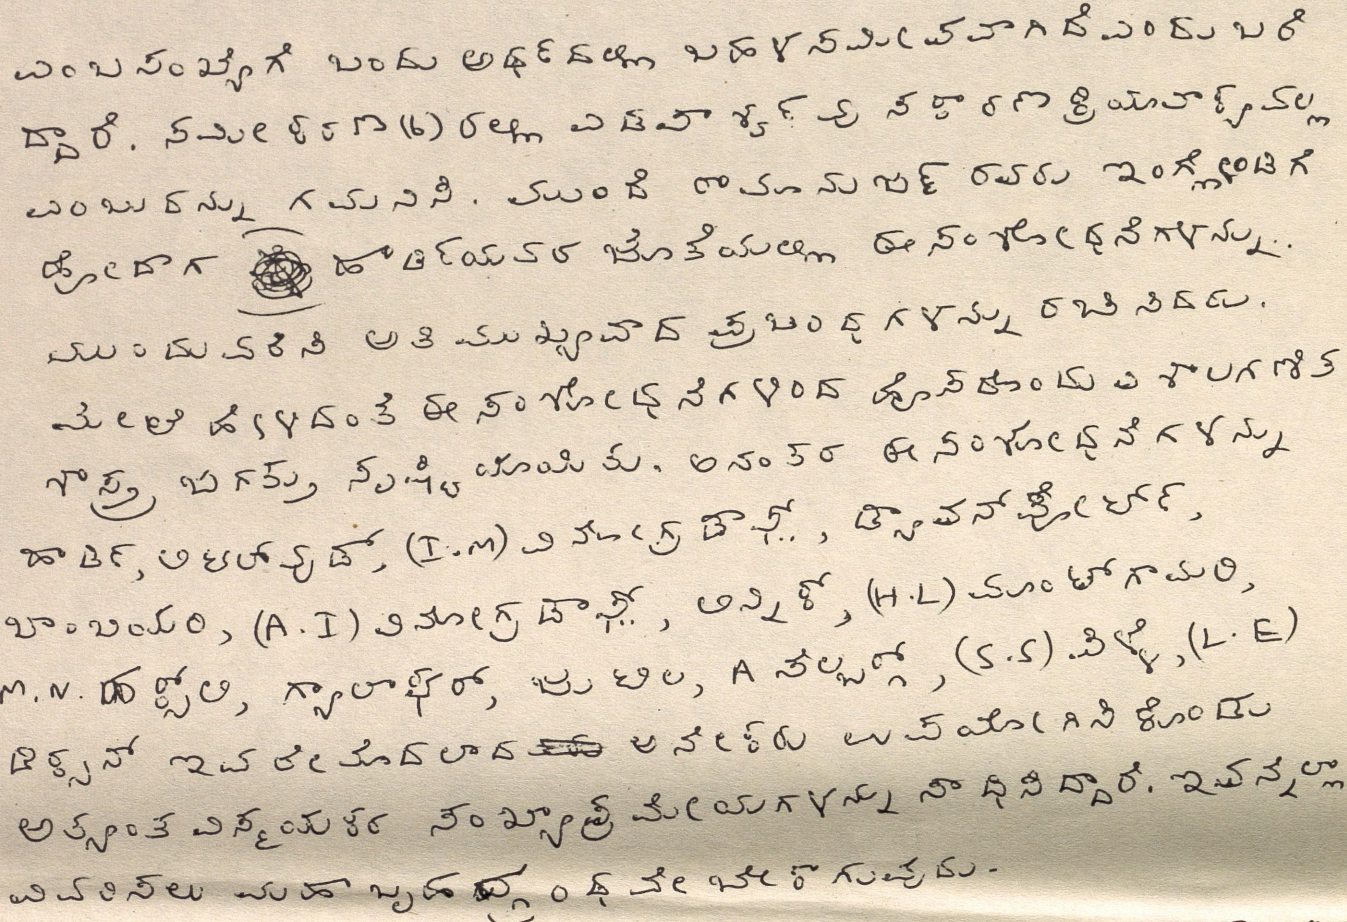 ಎಂಬ ಸಂಖ್ಯೆಗೆ ಒಂದು ಅರ್ಥದಲ್ಲಿ ಬಹಳ ಸಮೀಪವಾಗಿದೆ ಎಂದು ಬರೆ
ದ್ದಾರೆ. ಸಮೀಕರಣ (6) ರಲ್ಲಿ ಎಡಪಾರ್ಶ್ವವು
ಎಂಬುದನ್ನು ಗಮನಿಸಿ. ಮುಂದೆ ರಾಮಾನುಜನ್ ರವರು ಇಂಗ್ಲೆಂಡಿಗೆ
ಹೋದಾಗ ಹಾರ್ಡಿಯವರ ಜೊತೆಯಲ್ಲಿ ಈ ಸಂಶೋಧನೆಗಳನ್ನು
ಮುಂದುವರಿಸಿ ಅತಿ ಮುಖ್ಯವಾದ ಪ್ರಬಂಧಗಳನ್ನು ರಚಿಸಿದರು.
ಮೇಲೆ ಹೇಳಿದಂತೆ ಈ ಸಂಶೋಧನೆಗಳಿಂದ ಹೊಸದೊಂದು ವಿಶಾಲ ಗಣಿತ
ಶಾಸ್ತ್ರ ಜಗತ್ತು ಸೃಷ್ಟಿಯಾಯಿತು. ಅನಂತರ ಈ ಸಂಶೋಧನೆಗಳನ್ನು
ಹಾರ್ಡಿ, ಲಿಟಲ್‌ವುಡ್, (I.M) ವಿನೋಗ್ರಡಾಫ್, ಡ್ಯಾವನ್‌ಪೋರ್ಟ್,
ಬಾಂಬಿಯರಿ, (A.I) ವಿನೋಗ್ರಡಾಫ್, ಲಿನ್ನಿಕ್, (H.L) ಮಾಂಟ್‌ಗಾಮರಿ,
M.N. ಹಕ್ಸ್‌ಲಿ, ಗ್ಯಾಲಾಘರ್, ಜುಟಿಲ, A ಸೆಲ್ಬರ್ಗ್, (S.S). ಪಿಳ್ಳೈ, (L.E)
ಡಿಕ್ಸನ್ ಇವರೇ ಮೊದಲಾದ ಅನೇಕರು ಉಪಯೋಗಿಸಿಕೊಂಡು
ಅತ್ಯಂತ ವಿಸ್ಮಯಕರ ಸಂಖ್ಯಾಪ್ರಮೇಯಗಳನ್ನು ಸಾಧಿಸಿದ್ದಾರೆ. ಇವನ್ನೆಲ್ಲಾ
ವಿವರಿಸಲು ಮಹಾ ಬೃಹದ್ಗ್ರಂಥವೇ ಬೇಕಾಗುವುದು.